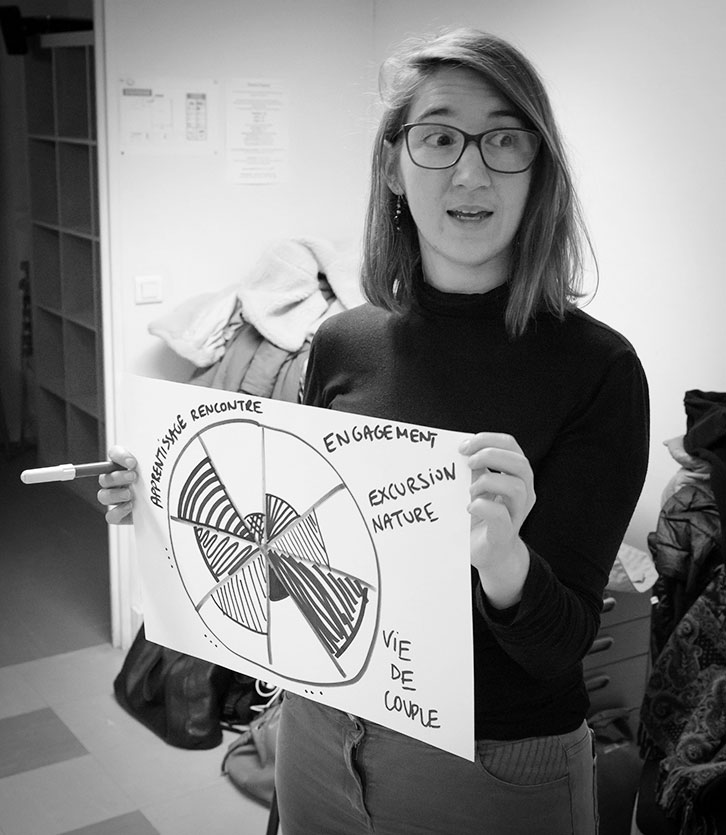 APPRENTISSAGE RENCONTRE
ENGAGEMENT
EXCURSION
NATURE
VIE
DE
COUPLE
...
...